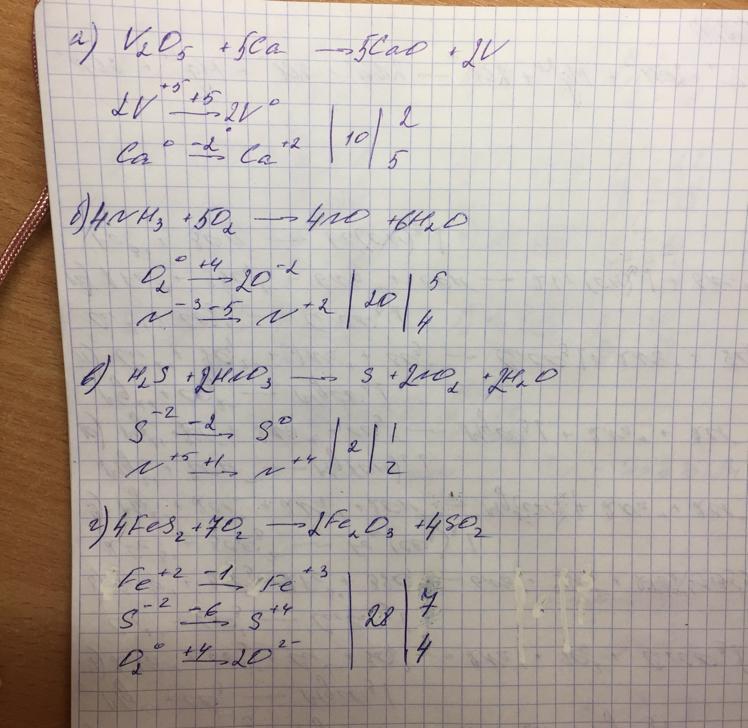 а) V₂O₅ + 5Ca → 5CaO + 2V
2V⁺⁵ +5→ 2V⁰ | 10 | 2
Ca⁰ -2→ Ca⁺² | | 5
б) 4NH₃ + 5O₂ → 4NO + 6H₂O
O₂⁰ +4→ 2O⁻² | 20 | 5
N⁻³ -5→ N⁺² | | 4
в) H₂S + 2HNO₃ → S + 2NO₂ + 2H₂O
S⁻² -2→ S⁰ | 2 | 1
N⁺⁵ +1→ N⁺⁴ | | 2
г) 4FeS₂ + 7O₂ → 2Fe₂O₃ + 4SO₂
Fe⁺² -1→ Fe⁺³
S⁻² -6→ S⁺⁴ | 28 | 7
O₂⁰ +4→ 2O²⁻ | | 4